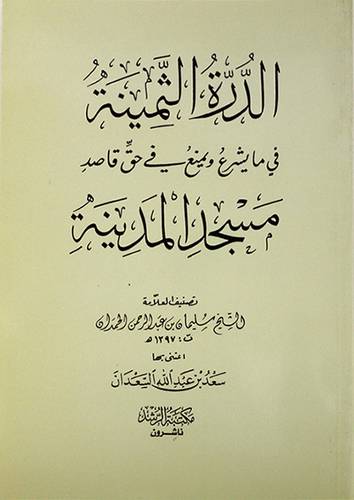 الدُّرَّةُ الثَّمِينَةُ
في ما يشرعُ ويمنعُ في حقِّ قاصدِ
مَسْجِدِ المَدِينَةِ
تصنيف العلّامة
الشيخ سليمان بن عبد الرحمن الحمدان
ت: ١٣٩٧ هـ
اعتنى بها
سَعْد بن عَبْدِ اللهِ السَّعْدَانَ
مكتبة الرشد
ناشرون